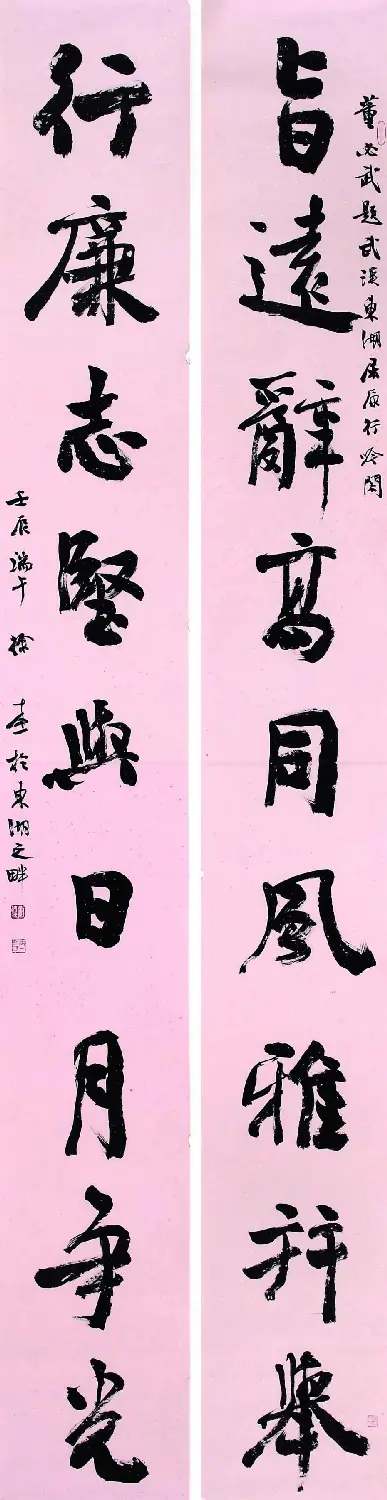 董必武題武漢東湖屈原行吟閣
旨遠辭高同風雅并舉
行廉志堅與日月争光
壬辰端午徐 於東湖之畔